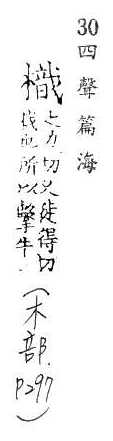 30四聲篇海
樴
之力切又徒得切
杙也所以繫牛
(木部.
P297)